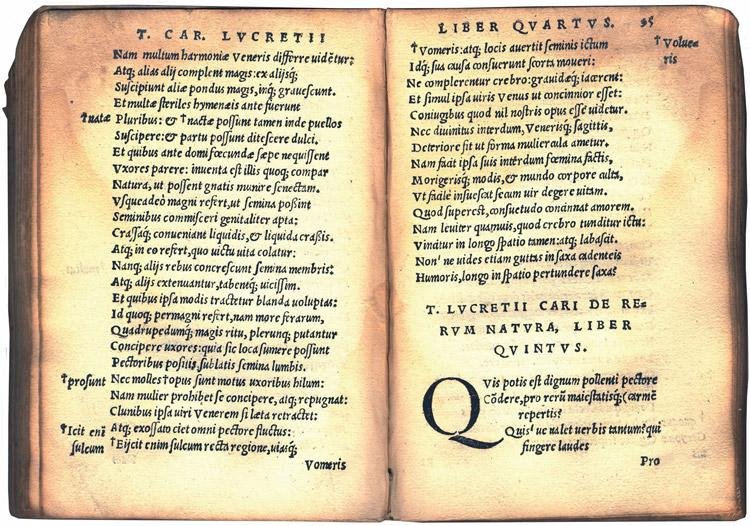 T. CAR. LVCRETII
Nam multum harmoniæ Veneris differre uidẽtur:
Atq; alias alij complent magis: ex alijsq;
Suscipiunt aliæ pondus magis, inq; grauescunt.
Et multæ steriles hymenæis ante fuerunt
†natæ Pluribus: & †nactæ possunt tamen inde puellos
Suscipere: & partu possunt ditescere dulci.
Et quibus ante domi fœcundæ sæpe nequissent
Vxores parere: inuenta est illis quoq; compar
Natura, ut possent gnatis munire senectam.
Vsqueadeò magni refert, ut semina possint
Seminibus commisceri genitaliter apta:
Crassaq; conueniant liquidis, & liquida crassis.
Atq; in eo refert, quo uictu uita colatur:
Nanq; alijs rebus concrescunt semina membris:
Atq; alijs extenuantur, tabentq; uicissim.
Et quibus ipsa modis tractetur blanda uoluptas:
Id quoq; permagni refert, nam more ferarum,
Quadrupedumq; magis ritu, plerunq; putantur
Concipere uxores: quia sic loca sumere possunt
Pectoribus positis, sublatis semina lumbis.
†prosunt Nec molles †opus sunt motus uxoribus hilum:
Nam mulier prohibet se concipere, atq; repugnat:
Clunibus ipsa uiri Venerem si læta retractet:
Atq; exossato ciet omni pectore fluctus:
†Icit enĩ †Eijcit enim sulcum recta regione, uiasq;
sulcum
Vomeris
LIBER QVARTVS. 95
†Vomeris: atq; locis auertit seminis ictum †Voluea
Idq; sua causa consuerunt scorta moueri: ris
Ne complerentur crebro: grauidæq; iacerent:
Et simul ipsa uiris Venus ut concinnior esset:
Coniugibus quod nil nostris opus esse uidetur.
Nec diuinitus interdum, Venerisq; sagittis,
Deteriore fit ut forma muliercula ametur.
Nam facit ipsa suis interdum fœmina factis,
Morigerisq; modis, & mundo corpore culta,
Vt facilè insuescat secum uir degere uitam.
Quod superest, consuetudo concinnat amorem.
Nam leuiter quamuis, quod crebro tunditur ictu:
Vincitur in longo spatio tamen: atq; labascit.
Non' ne uides etiam guttas in saxa cadenteis
Humoris, longo in spatio pertundere saxa?
T. LVCRETII CARI DE RE-
RVM NATVRA, LIBER
QVINTVS.
QVis potis est dignum pollenti pectore
Cõdere, pro rerũ maiestatisq; (carmẽ
repertis?
Quis' ue ualet uerbis tantum? qui
fingere laudes
Pro